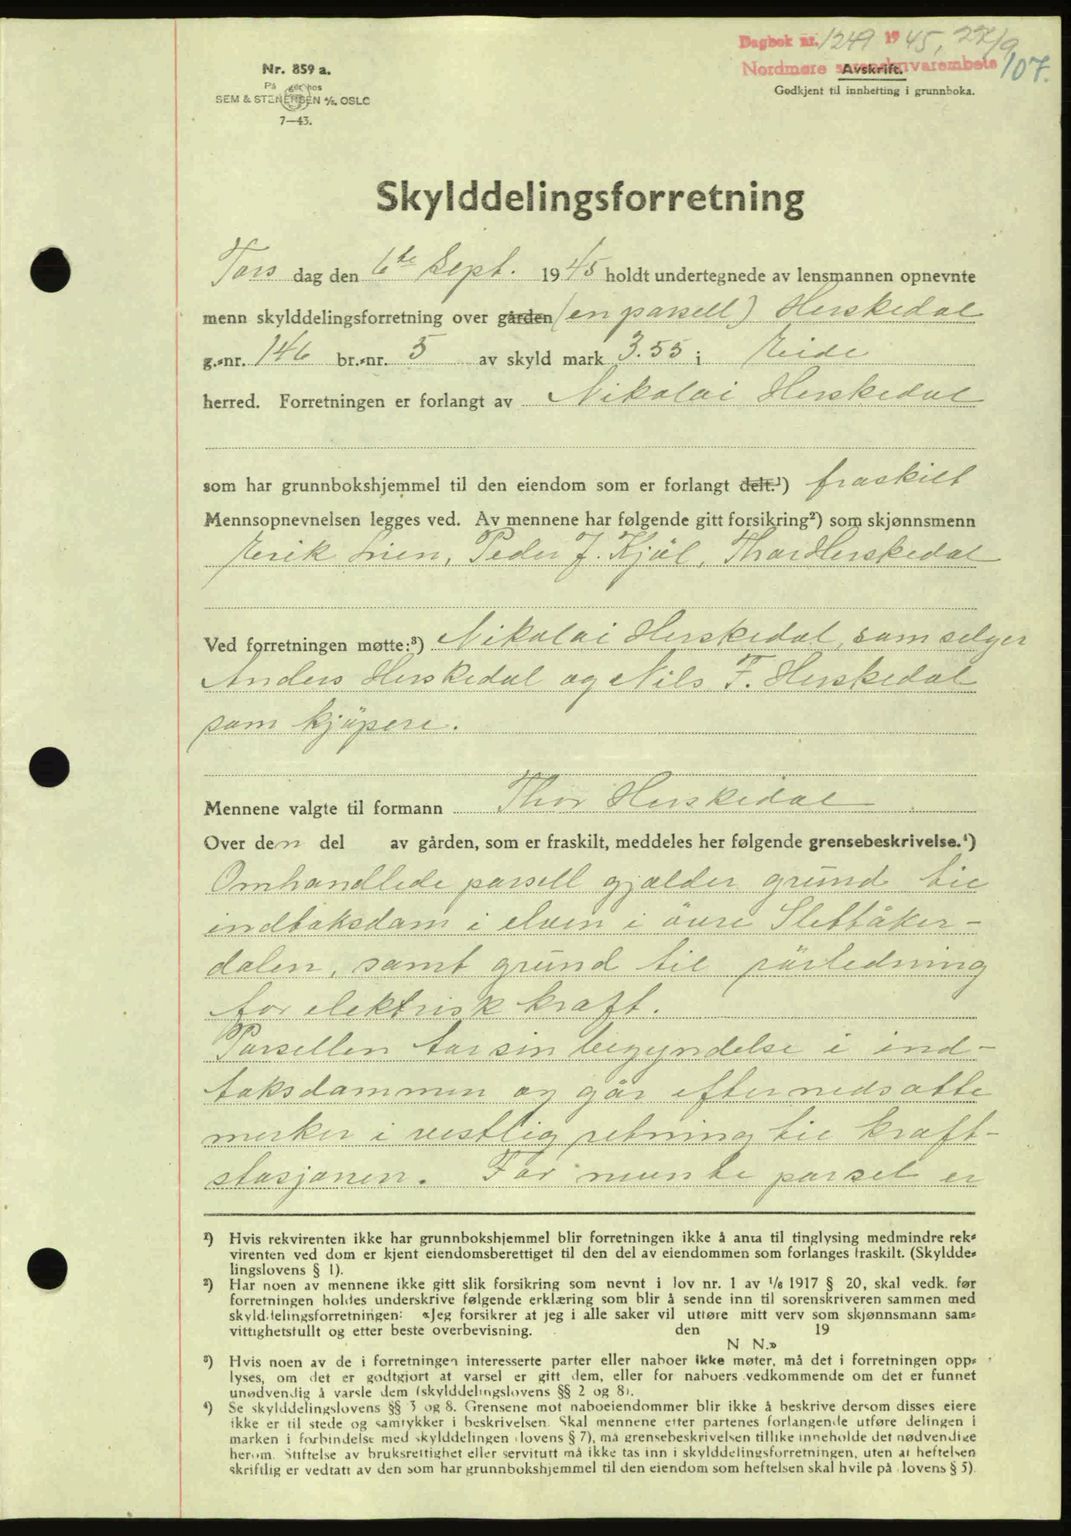 Dagbok nr. 1249 1945, 27/9
Nordmøre sorenskrivarembete 107.
Avskrift.
Godkjent til innhefting i grunnboka.
Nr. 859 a.
På hos
SEM & STENERSEN A/S, OSLO
7—43.
Skylddelingsforretning
Tors dag den 6te Sept. 1945 holdt undertegnede av lensmannen opnevnte
menn skylddelingsforretning over gården (en parsell) Herskedal
g.-nr. 146 br.-nr. 5 av skyld mark 3.55 i Eide
herred. Forretningen er forlangt av Nikolai Herskedal
som har grunnbokshjemmel til den eiendom som er forlangt delt.¹) fraskilt
Mennsopnevnelsen legges ved. Av mennene har følgende gitt forsikring²) som skjønnsmenn
Erik Lien, Peder J. Kjöl, Thor Herskedal
Ved forretningen møtte:³) Nikolai Herskedal, som selger
Anders Herskedal og Nils F. Herskedal
som kjöpere.
Mennene valgte til formann Thor Herskedal
Over den del av gården, som er fraskilt, meddeles her følgende grensebeskrivelse.⁴)
Omhandlede parsell gjælder grund til
indtaksdam i elven i övre Slettåker-
dalen, samt grund til rörledning
for elektrisk kraft.
Parsellen tar sin begyndelse i ind-
taksdammen og går efter nedsatte
merker i vestlig retning til kraft-
stasjonen. For nevnte parsel er
¹) Hvis rekvirenten ikke har grunnbokshjemmel blir forretningen ikke å anta til tinglysing medmindre rek-
virenten ved dom er kjent eiendomsberettiget til den del av eiendommen som forlanges fraskilt. (Skyldde-
lingslovens § 1).
²) Har noen av mennene ikke gitt slik forsikring som nevnt i lov nr. 1 av 1/6 1917 § 20, skal vedk. før
forretningen holdes underskrive følgende erklæring som blir å sende inn til sorenskriveren sammen med
skylddelingsforretningen: «Jeg forsikrer at jeg i alle saker vil utføre mitt verv som skjønnsmann sam-
vittighetsfullt og etter beste overbevisning. den 19
N N.»
³) Hvis noen av de i forretningen interesserte parter eller naboer ikke møter, må det i forretningen opp-
lyses, om det er godtgjort at varsel er gitt dem, eller for naboers vedkommende om det er funnet
unødvendig å varsle dem (skylddelingslovens §§ 2 og 8).
⁴) Se skylddelingslovens §§ 3 og 8. Grensene mot naboeiendommer blir ikke å beskrive dersom disses eiere
ikke er til stede og samtykker i beskrivelsen. Skal mennene etter partenes forlangende utføre delingen i
marken i forbindelse med skylddelingen (lovens § 7), må grensebeskrivelsen tillike inneholde det nødvendige
herom. Stiftelse av bruksrettighet eller servitutt må ikke tas inn i skylddelingsforretningen, uten at heftelsen
skriftlig er vedtatt av den som har grunnbokshjemmel til den eiendom som heftelsen skal hvile på (lovens § 5).